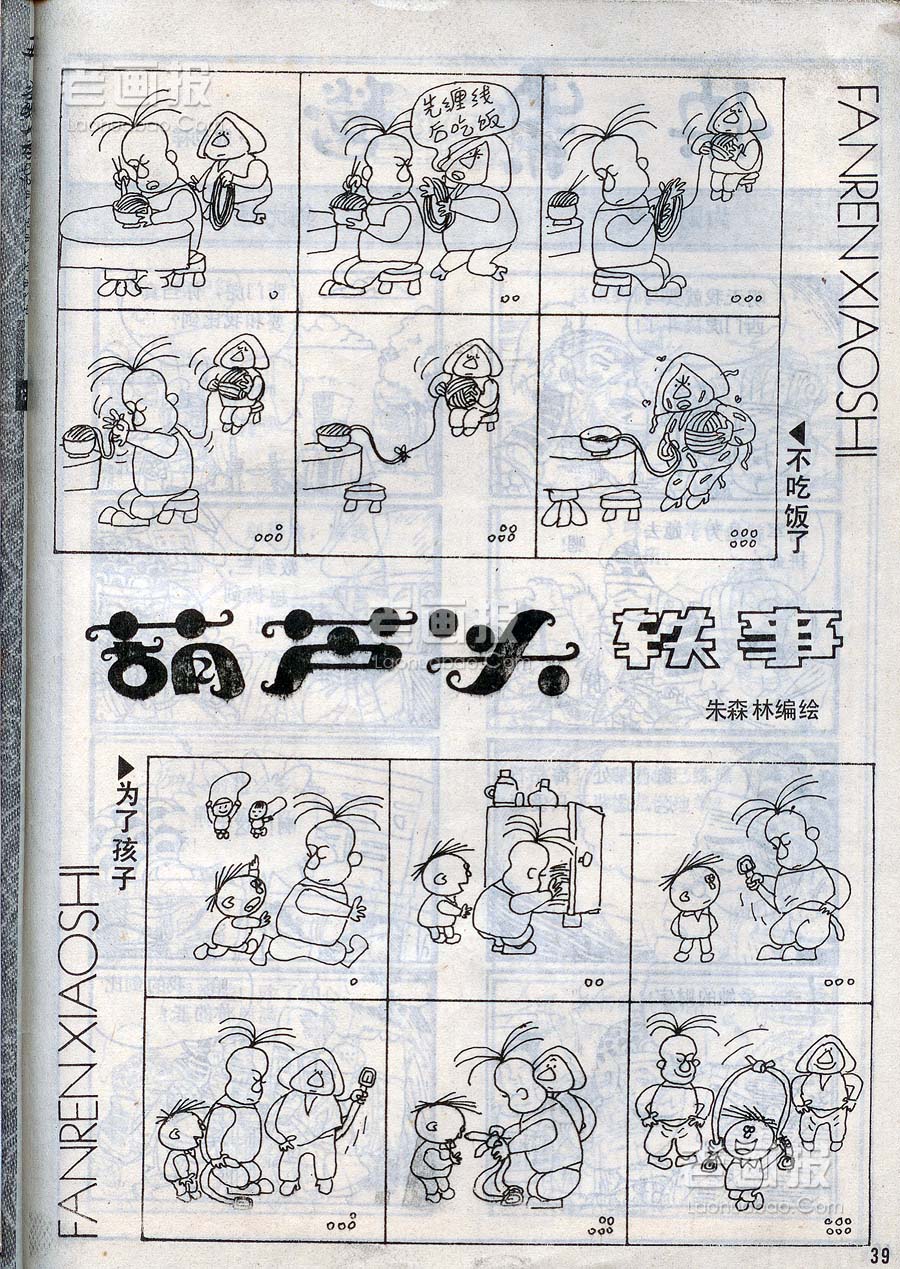 老画报
Laohuabao.Com
先缠线
后吃饭
FANREN XIAOSHI
◀不吃饭了
葫芦头 轶事
老画报
Laohuabao.Com
朱森林编绘
▶为了孩子
FANREN XIAOSHI
老画报
Laohuabao.Com
39